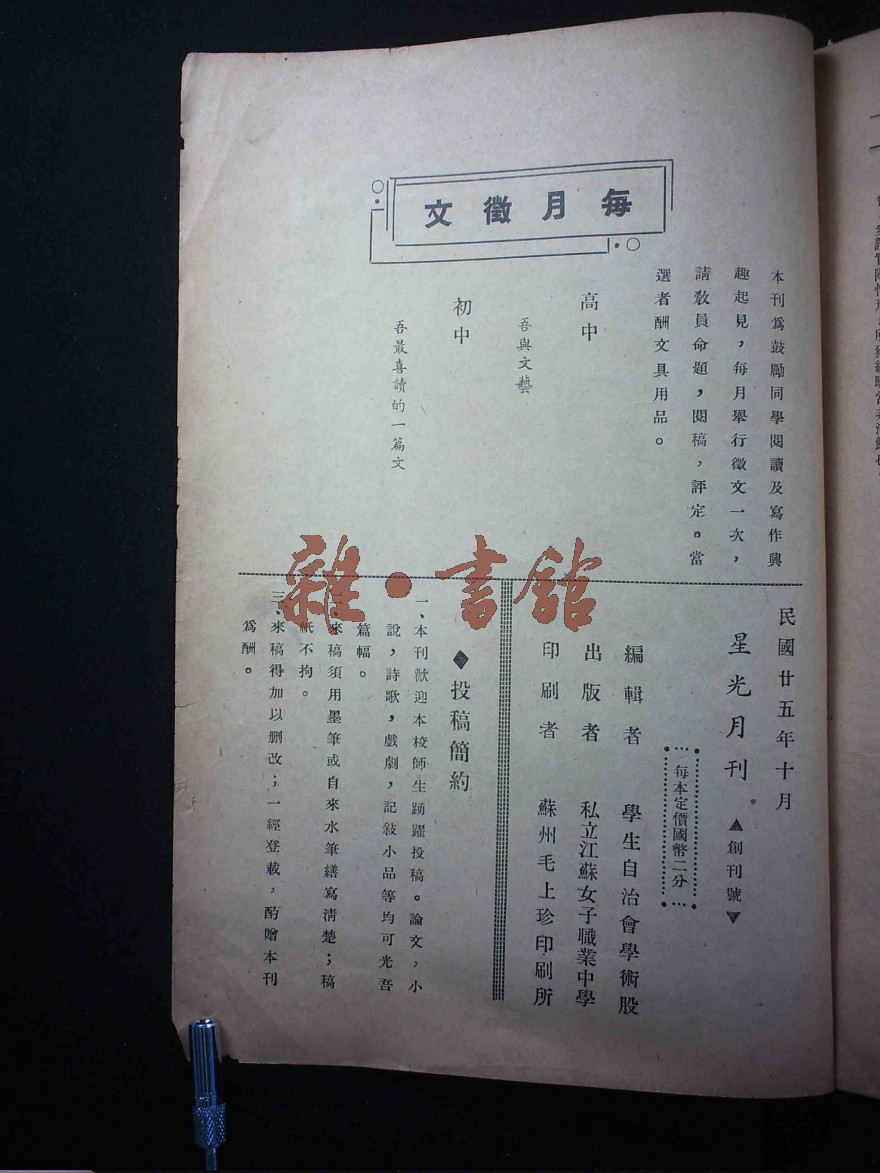 每月徵文
本刊爲鼓勵同學閱讀及寫作興
趣起見，每月舉行徵文一次，
請敎員命題，閱稿，評定。當
選者酬文具用品。
高中
吾與文藝
初中
吾最喜讀的一篇文
民國廿五年十月
星光月刊 ▲創刊號▼
每本定價國幣二分
編輯者 學生自治會學術股
出版者 私立江蘇女子職業中學
印刷者 蘇州毛上珍印刷所
◆投稿簡約
一、本刊歡迎本校師生踴躍投稿。論文，小
說，詩歌，戲劇，記敍小品等均可光吾
篇幅。
二、來稿須用墨筆或自來水筆繕寫清楚；稿
紙不拘。
三、來稿得加以删改；一經登載，酌贈本刊
爲酬。
雜·書館